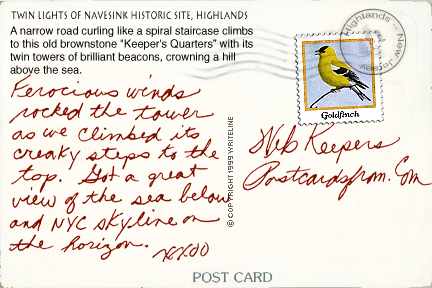 TWIN LIGHTS OF NAVESINK HISTORIC SITE, HIGHLANDS
A narrow road curling like a spiral staircase climbs
to this old brownstone “Keeper’s Quarters” with its
twin towers of brilliant beacons, crowning a hill
above the sea.
Ferocious winds
rocked the tower
as we climbed its
creaky steps to the
top. Got a great
view of the sea below
and NYC skyline on
the horizon.
XXOO
© COPYRIGHT 1999 WRITELINE
Highlands
New Je
Goldfinch
Web Keepers
Postcardsfrom.Com
POST CARD